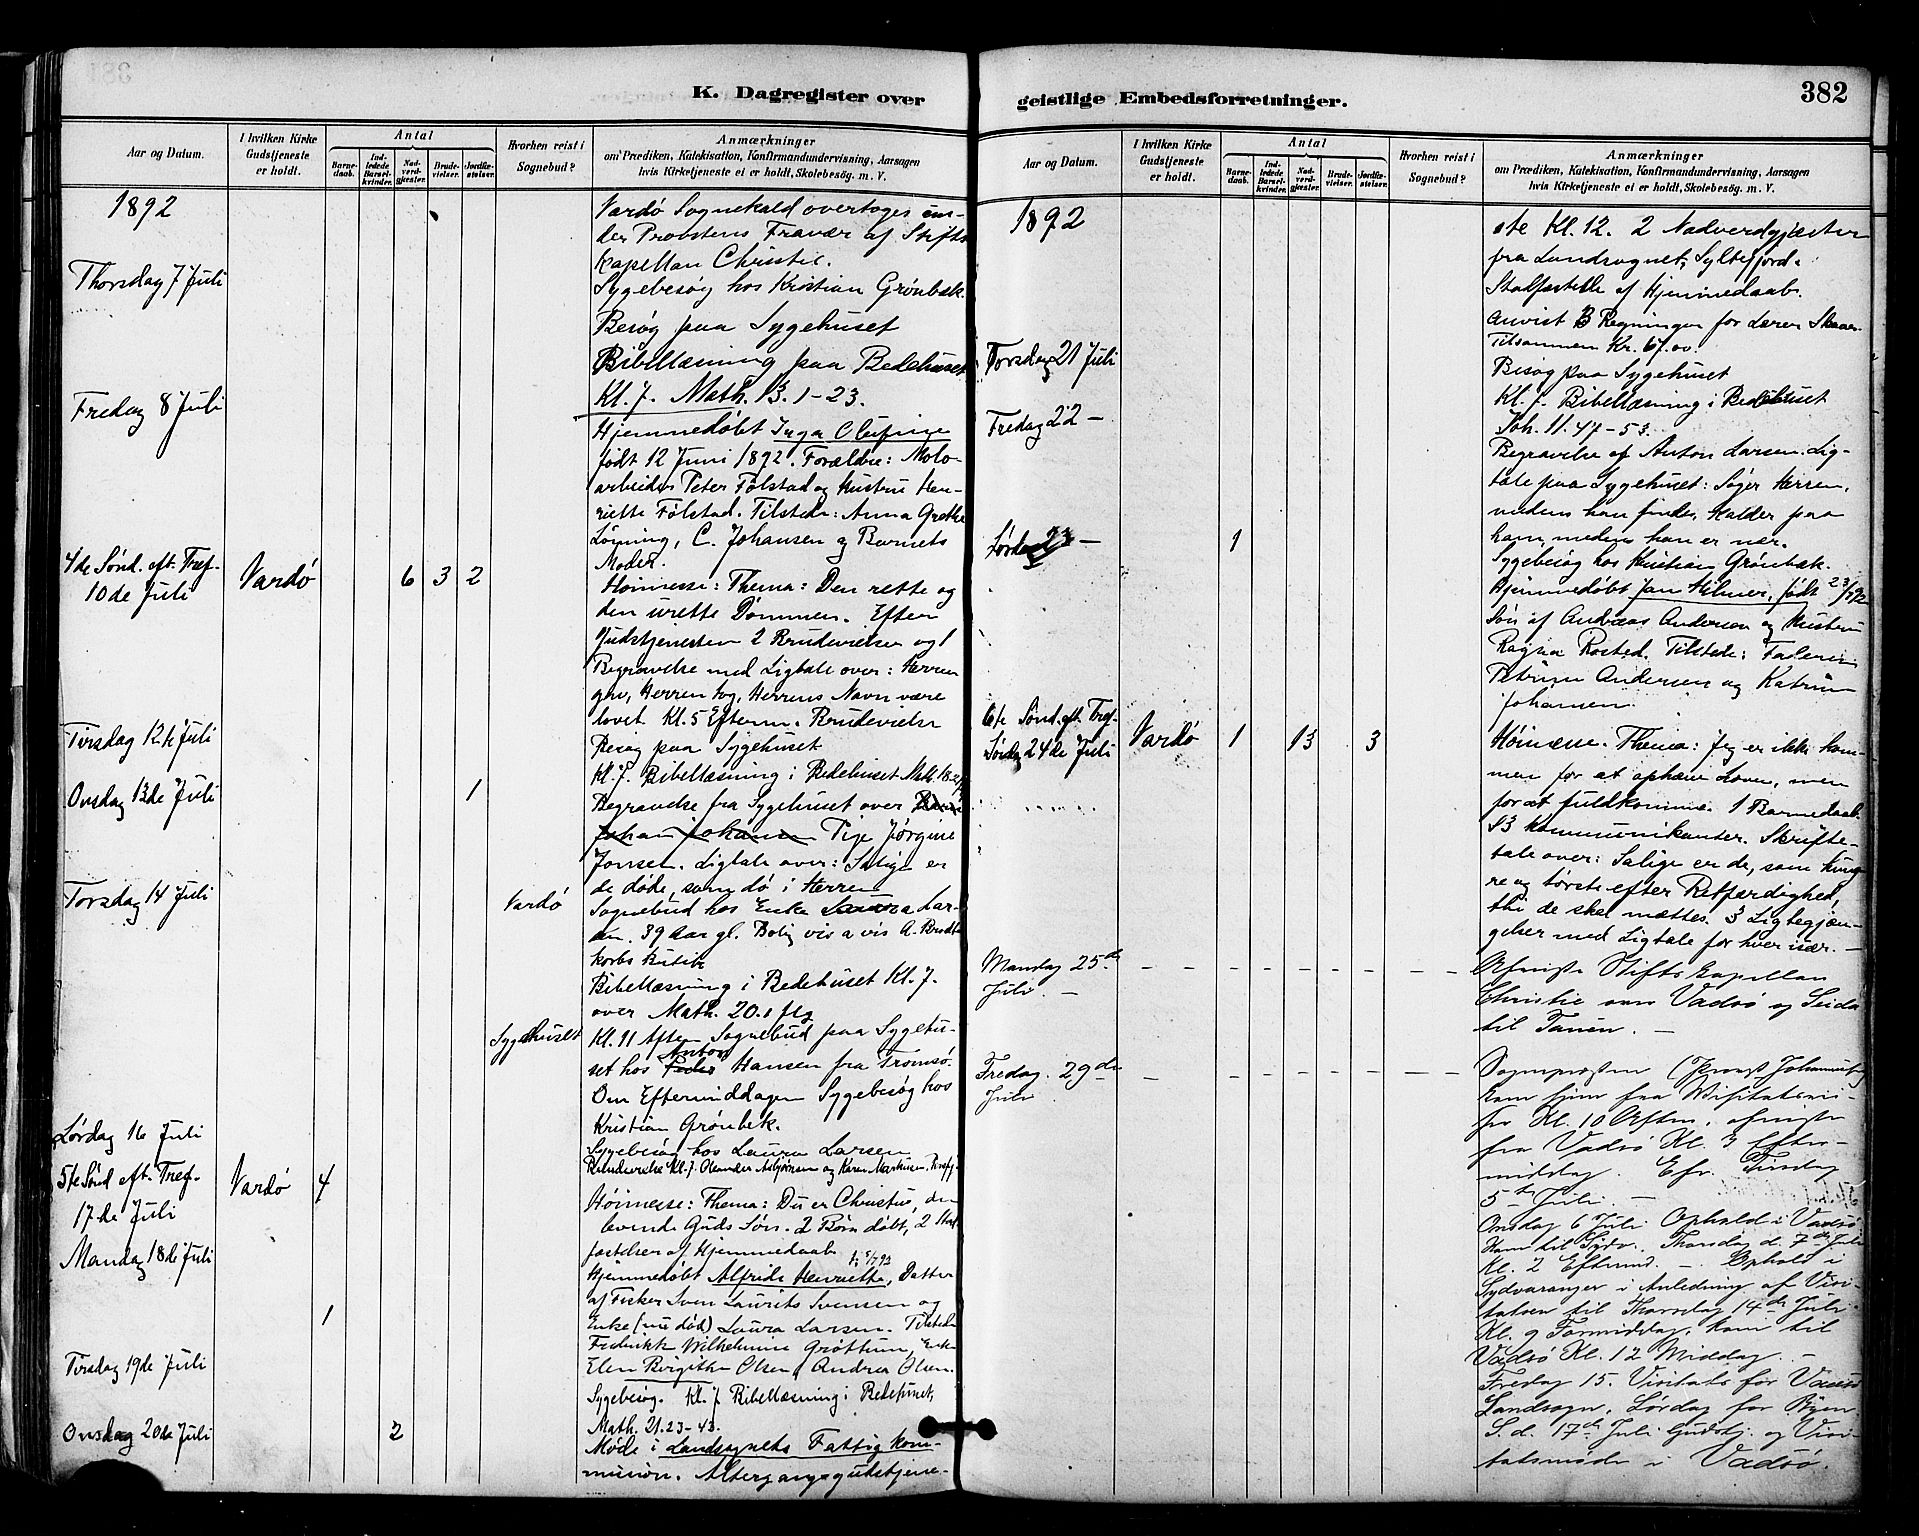 K. Dagregister over
Aar og Datum.
I hvilken Kirke
Gudstjeneste
er holdt.
Antal
Barne-
daab.
Ind-
ledede
Barsel-
kvinder.
Nad-
verd-
gjæster.
Brude-
vielser.
Jordfæ-
stelser.
Hvorhen reist i
Sognebud?
Anmærkninger
om Prædiken, Katekisation, Konfirmandundervisning, Aarsagen
hvis Kirketjeneste ei er holdt, Skolebesög. m. V.
1892
Vardø Sognekald overtoges un-
der Provstens Fravær af Stifts
kapellan Christie.
Thorsdag 7 Juli
Sygebesøg hos Kristian Grønbæk.
Besøg paa Sygehuset
Bibellæsning paa Bedehuset
Kl. 7. Math. 13. 1-23.
Fredag 8 Juli
Hjemmedøbt Inga Olufine
født 12 Juni 1892. Forældre: Molo-
arbeider Peter Følstad og Hustru Hen-
riette Følstad. Tilstede: Anna Grethe
Løsning, C. Johansen og Barnets
Moder.
4de Sønd. eft. Tref.
10de Juli
Vardø
6 3 2
Høimesse: Thema: Den rette og
den urette Dømmen. Efter
Gudstjenesten 2 Brudevielser og 1
Begravelse med Ligtale over: Herren
gav, Herren tog, Herrens Navn være
lovet. Kl. 5 Efterm. Brudevielse
Tirsdag 12te Juli
Besøg paa Sygehuset
Kl. 7. Bibellæsning i Bedehuset Math. 18.
Onsdag 13de Juli
1
Begravelse fra Sygehuset over
Pige Jørgine
Jonsen. Ligtale over: Salige er
de døde, som dø i Herren
Torsdag 14 Juli
Vardø
Sognebud hos Enke Laura Lar-
sen. 39 Aar gl. Bolig vis a vis A. Brodt
korbs Butik
Bibellæsning i Bedehuset Kl. 7.
over Math. 20. 1 flg
Sygehuset
Kl. 11 Aften Sognebud paa Sygehu-
set hos Anton Hansen fra Tromsø.
Om Eftermiddagen Sygebesøg hos
Kristian Grønbek.
Lørdag 16 Juli
Sygebesøg hos Laura Larsen
Brudevielse Kl. 7. Oleander Asbjørnsen og Karen Markusen.
5te Sønd eft. Tref.
17de Juli
Vardø
4
Høimesse: Thema: Du er Christus, den
levende Guds Søn. 2 Børn døbt, 2 Stad
fæstelser af Hjemmedaab
Mandag 18de Juli
1
Hjemmedøbt Alfride Henriette, Datter
af Fisker Sven Laurits Svensen og
Enke (nu død) Laura Larsen. Tilstede
Fredrikke Wilhelmine Grøttum, Enke
Elen Birgithe Olsen, Andrea Olsen.
Tirsdag 19de Juli
Sygebesøg. Kl. 7 Bibellæsning i Bedehuset,
Math. 21. 23-43.
Onsdag 20de Juli
2
Møde i Landsognets Fattigkom-
mission. Altergangsgudstjene-
geistlige Embedsforretninger.
382
Aar og Datum.
I hvilken Kirke
Gudstjeneste
er holdt.
Antal
Barne-
daab.
Ind-
ledede
Barsel-
kvinder.
Nad-
verd-
gjæster.
Brude-
vielser.
Jordfæ-
stelser.
Hvorhen reist i
Sognebud?
Anmærkninger
om Prædiken, Katekisation, Konfirmandundervisning, Aarsagen
hvis Kirketjeneste ei er holdt, Skolebesög. m. V.
1892
ste Kl. 12. 2 Nadverdgjæster
fra Landsognet, Syltefjord.
Stadfæstelse af Hjemmedaab.
anvist 3 Regninger for Lærer
Tilsammen Kr. 67.00.
Torsdag 21 Juli
Besøg paa Sygehuset
Kl. 7. Bibellæsning i Bedehuset
Joh. 11. 47-53.
Fredag 22 —
Begravelse af Anton Larsen. Lig-
tale paa Sygehuset: Søger Herren,
medens han findes, kalder paa
ham, medens han er nær.
Sygebesøg hos Kristian Grønbæk.
Lørdag 23 —
1
Hjemmedøbt Jan Hilmer, født
Søn af Andreas Andersen og Hustru
Ragna Rosted. Tilstede: Faderen
Petrine Andersen og Katrine
Johansen.
6te Sønd. eft. Tref.
Søndag 24de Juli
Vardø
1 13 3
Høimesse. Thema: Jeg er ikke kom-
men for at ophæve Loven, men
for at fuldkomme. 1 Barnedaab.
13 Kommunikanter. Skrifte-
tale over: Salige er de, som hung-
re og tørste efter Retfærdighed,
thi de skal mættes. 3 Ligbegjæn-
gelser med Ligtale for hver især. —
Mandag 25de
Juli. —
Afreiste Stiftskapellan
Christie over Vadsø og Seida
til Tanen. —
Fredag. 29de
Juli
Sognepræsten (Provst Johannesen)
kom hjem fra Visitatsrei-
se Kl. 10 Aften, afreiste
fra Vadsø Kl. 3 Efter-
middag. Cfr. Tirsdag
5te Juli. —
Onsdag 6 Juli Ophold i Vadsø.
Kom til Sydv. Thorsdag d. 7de Juli
Kl. 2 Efterm. — Ophold i
Sydvaranger i Anledning af Visi-
tatsen til Thorsdag 14de Juli
Kl. 9 Formiddag, kom til
Vadsø Kl. 12 Middag. —
Fredag 15. Visitats for Vadsø
Landsogn, Lørdag for Byen
S. d. 17de Juli Gudstj. og Visi-
tatsmøde i Vadsø.